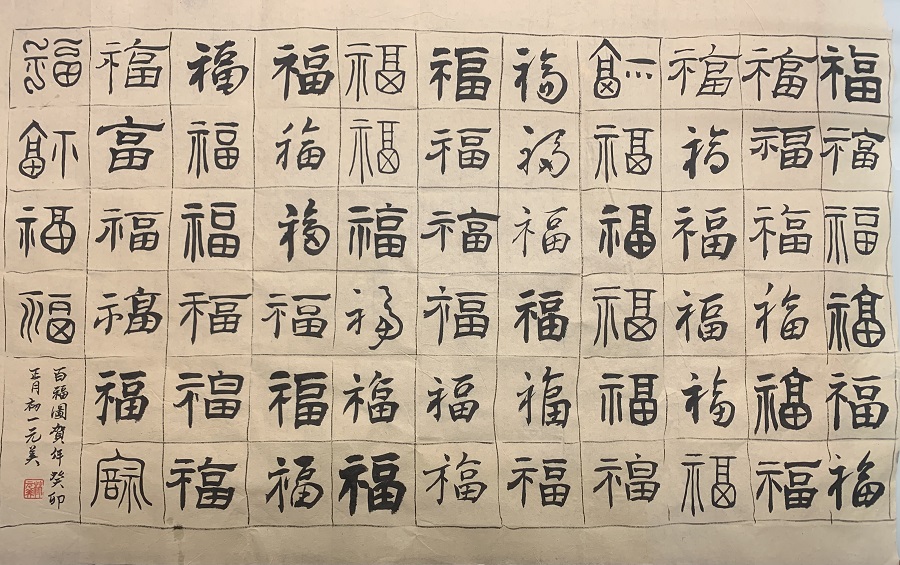 福福福福福福
福福福福福福
福福福福福福
福福福福福福
福福福福福福
福福福福福福
福福福福福福
福福福福福福
福福福福福福
福福福福福福
福福福福
百福圖賀年癸卯
正月初一元美